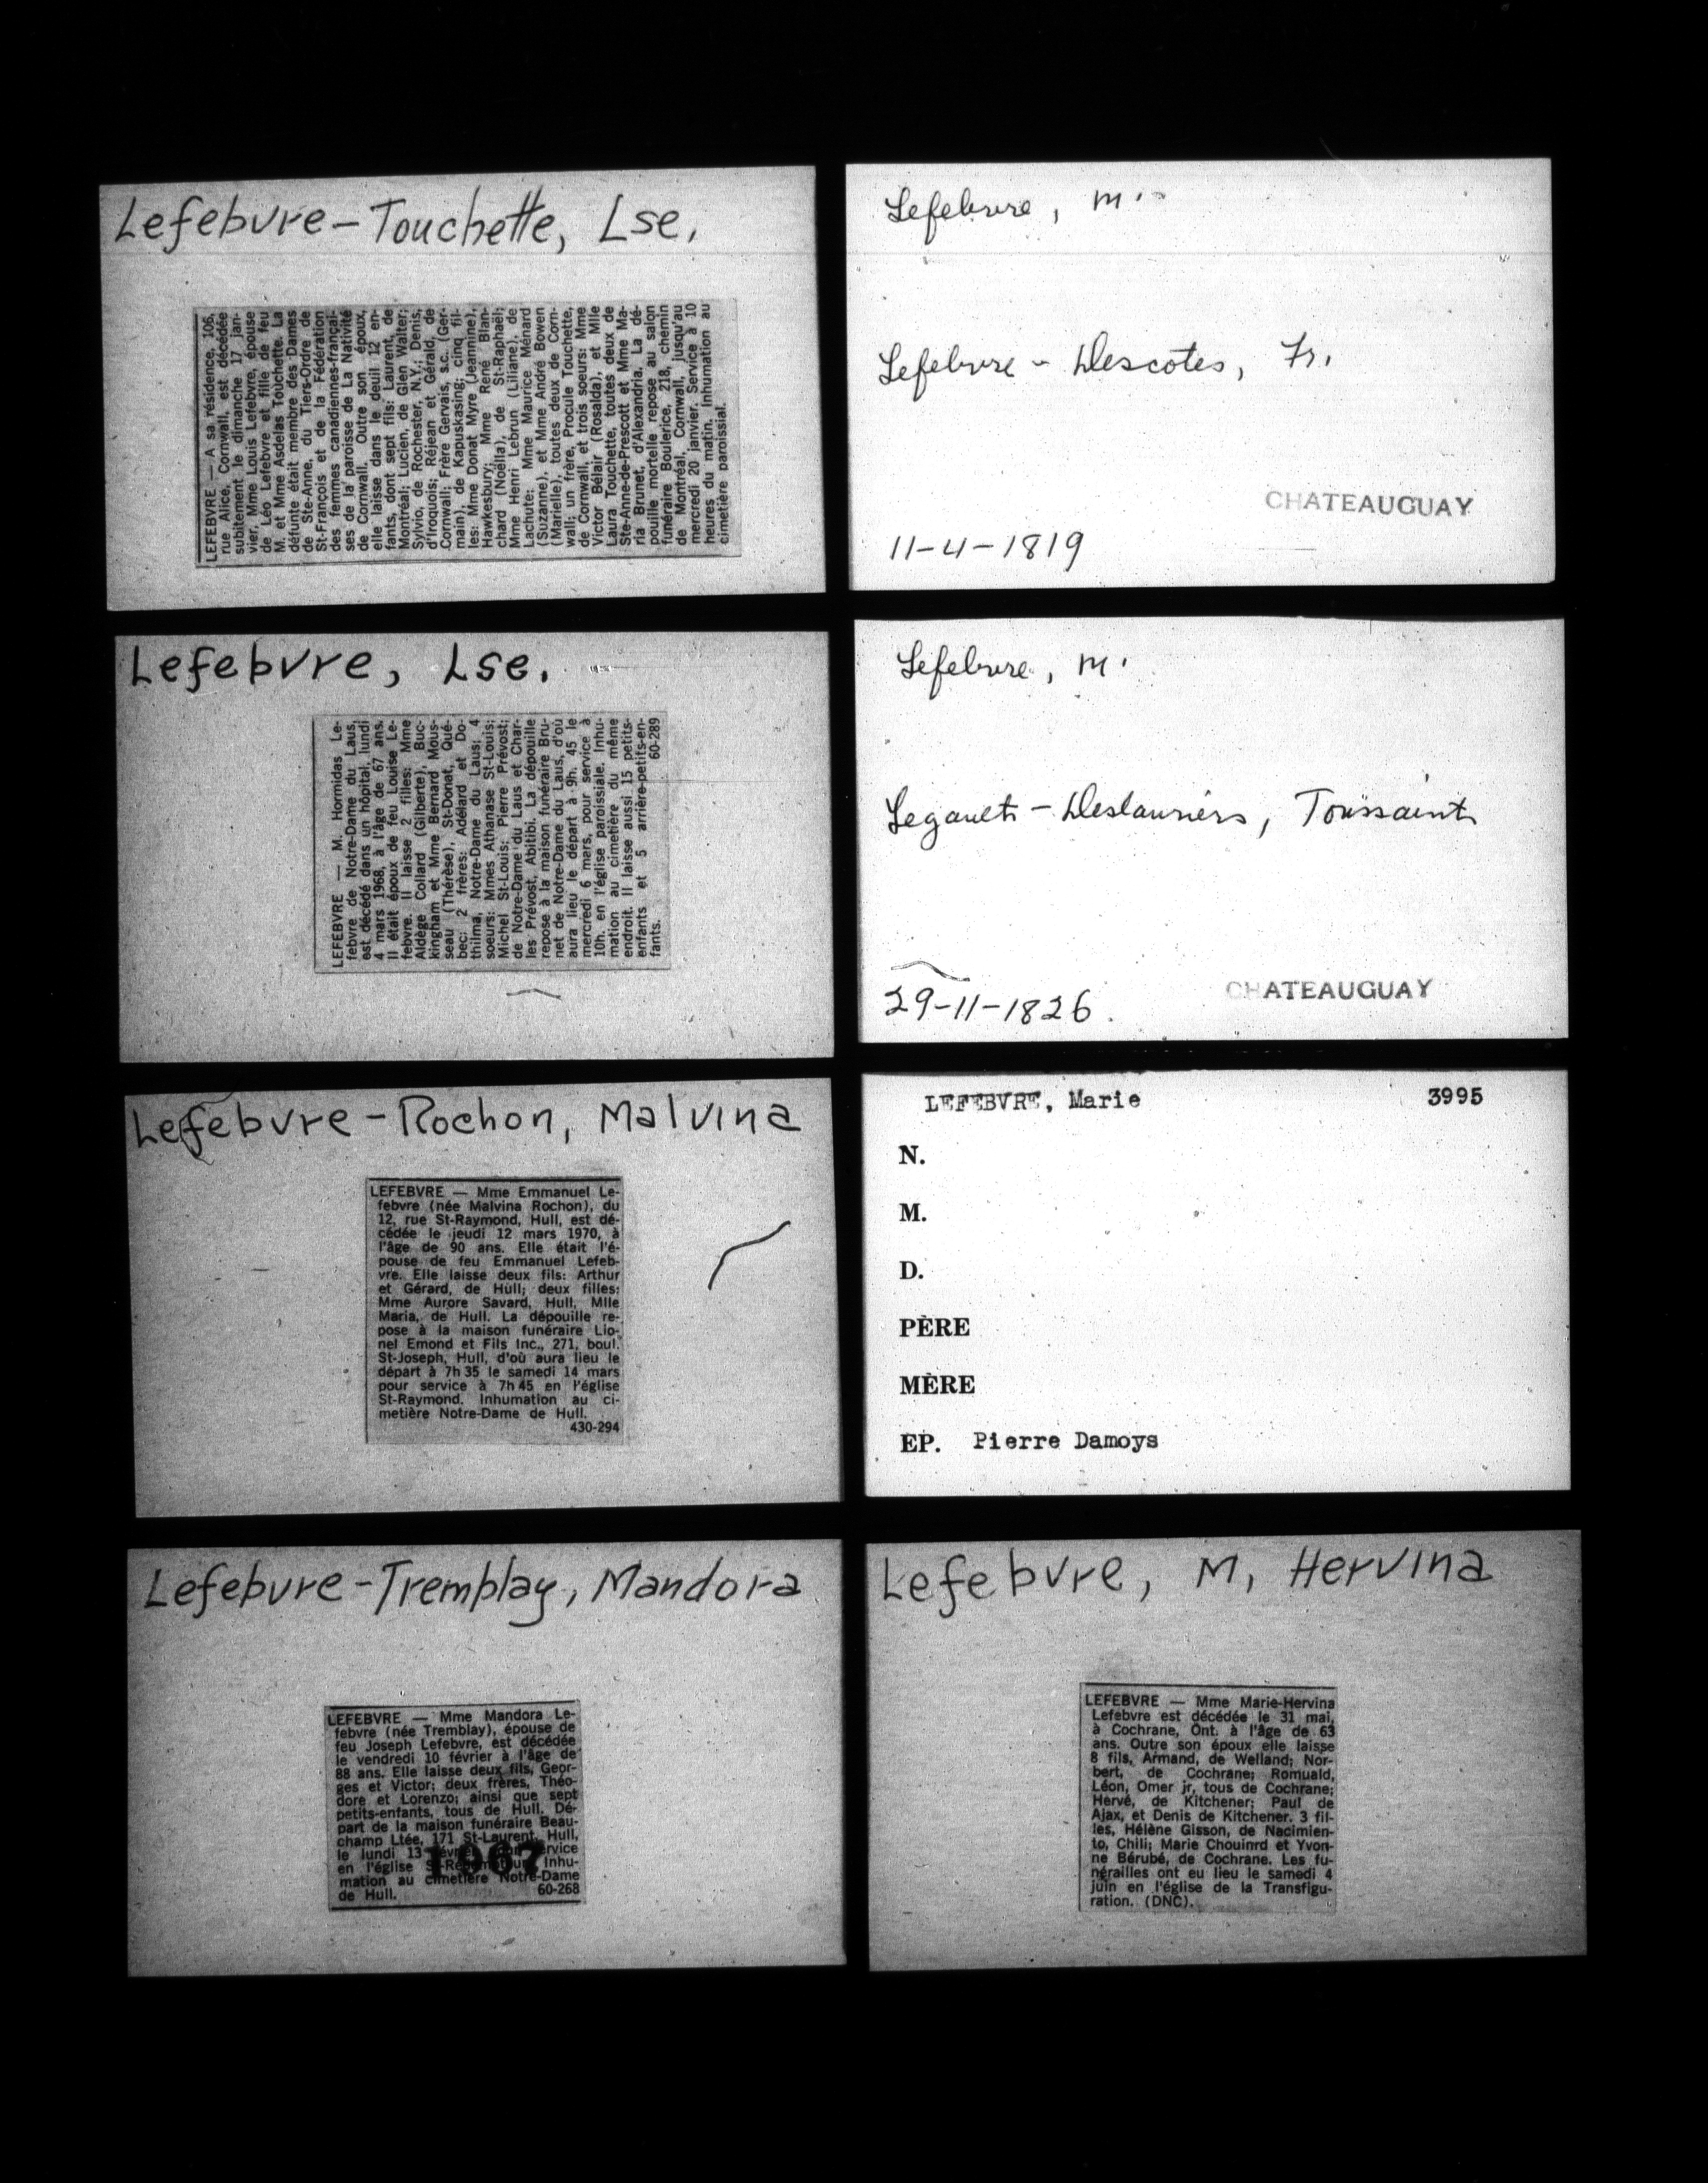 Lefebvre-Touchette, Lse.
LEFEBVRE — A sa résidence, 106,
rue Alice, Cornwall, est décédée
subitement le dimanche 17 jan-
vier, Mme Louis Lefebvre, épouse
de Léo Lefebvre et fille de feu
M. et Mme Asdelas Touchette. La
défunte était membre des Dames
de Ste-Anne, du Tiers-Ordre de
St-François et de la Fédération
des femmes canadiennes-françai-
ses de la paroisse de La Nativité
de Cornwall. Outre son époux,
elle laisse dans le deuil 12 en-
fants, dont sept fils: Laurent, de
Montréal; Lucien, de Glen Walter;
Sylvio, de Rochester, N.Y.; Denis,
d'Iroquois; Réjean et Gérald, de
Cornwall; Frère Gervais, s.c. (Ger-
main), de Kapuskasing; cinq fil-
les: Mme Donat Myre (Jeannine),
Hawkesbury; Mme René Blan-
chard (Noëlla), de St-Raphaël;
Mme Henri Lebrun (Liliane), de
Lachute; Mme Maurice Ménard
(Suzanne), et Mme André Bowen
(Marielle), toutes deux de Corn-
wall; un frère, Procule Touchette,
de Cornwall, et trois soeurs: Mme
Victor Bélair (Rosalda), et Mlle
Laura Touchette, toutes deux de
Ste-Anne-de-Prescott et Mme Ma-
ria Brunet, d'Alexandria. La dé-
pouille mortelle repose au salon
funéraire Boulerice, 218, chemin
de Montréal, Cornwall, jusqu'au
mercredi 20 janvier. Service à 10
heures du matin. Inhumation au
cimetière paroissial.
Lefebvre, M.
Lefebvre - Descotes, Fr.
CHATEAUGUAY
11-4-1819
Lefebvre, Lse.
LEFEBVRE — M. Hormidas Le-
febvre de Notre-Dame du Laus,
est décédé dans un hôpital, lundi
4 mars 1968, à l'âge de 67 ans.
Il était époux de feu Louise Le-
febvre. Il laisse 2 filles: Mme
Aldège Collard (Gilberte), Buc-
kingham et Mme Bernard Mous-
seau (Thérèse), St-Donat, Qué-
bec; 2 frères: Adélard et Do-
thilma, Notre-Dame du Laus; 4
soeurs: Mmes Athanase St-Louis;
Michel St-Louis; Pierre Prévost;
de Notre-Dame du Laus et Char-
les Prévost, Abitibi. La dépouille
repose à la maison funéraire Bru-
net de Notre-Dame du Laus, d'où
aura lieu le départ à 9h. 45 le
mercredi 6 mars, pour service à
10h. en l'église paroissiale. Inhu-
mation au cimetière du même
endroit. Il laisse aussi 15 petits-
enfants et 5 arrière-petits-en-
fants. 60-289
Lefebvre, M.
Legault - Deslauriers, Toussaint
29-11-1826.
CHATEAUGUAY
Lefebvre-Rochon, Malvina
LEFEBVRE — Mme Emmanuel Le-
febvre (née Malvina Rochon), du
12, rue St-Raymond, Hull, est dé-
cédée le jeudi 12 mars 1970, à
l'âge de 90 ans. Elle était l'é-
pouse de feu Emmanuel Lefeb-
vre. Elle laisse deux fils: Arthur
et Gérard, de Hull; deux filles:
Mme Aurore Savard, Hull, Mlle
Maria, de Hull. La dépouille re-
pose à la maison funéraire Lio-
nel Emond et Fils Inc., 271, boul.
St-Joseph, Hull, d'où aura lieu le
départ à 7h 35 le samedi 14 mars
pour service à 7h 45 en l'église
St-Raymond. Inhumation au ci-
metière Notre-Dame de Hull.
430-294
LEFEBVRE, Marie 3995
N.
M.
D.
PÈRE
MÈRE
EP. Pierre Damoys
Lefebvre-Tremblay, Mandora
LEFEBVRE — Mme Mandora Le-
febvre (née Tremblay), épouse de
feu Joseph Lefebvre, est décédée
le vendredi 10 février à l'âge de
88 ans. Elle laisse deux fils, Geor-
ges et Victor; deux frères, Théo-
dore et Lorenzo; ainsi que sept
petits-enfants, tous de Hull. Dé-
part de la maison funéraire Beau-
champ Ltée, 171 St-Laurent, Hull,
le lundi 13 février service
en l'église Inhu-
mation au cimetière Notre-Dame
de Hull. 60-268
1967
Lefebvre, M, Hervina
LEFEBVRE — Mme Marie-Hervina
Lefebvre est décédée le 31 mai,
à Cochrane, Ont. à l'âge de 63
ans. Outre son époux elle laisse
8 fils, Armand, de Welland; Nor-
bert, de Cochrane; Romuald,
Léon, Omer jr, tous de Cochrane;
Hervé, de Kitchener; Paul de
Ajax, et Denis de Kitchener. 3 fil-
les, Hélène Gisson, de Nacimien-
to, Chili; Marie Chouinrd et Yvon-
ne Bérubé, de Cochrane. Les fu-
nérailles ont eu lieu le samedi 4
juin en l'église de la Transfigu-
ration. (DNC).